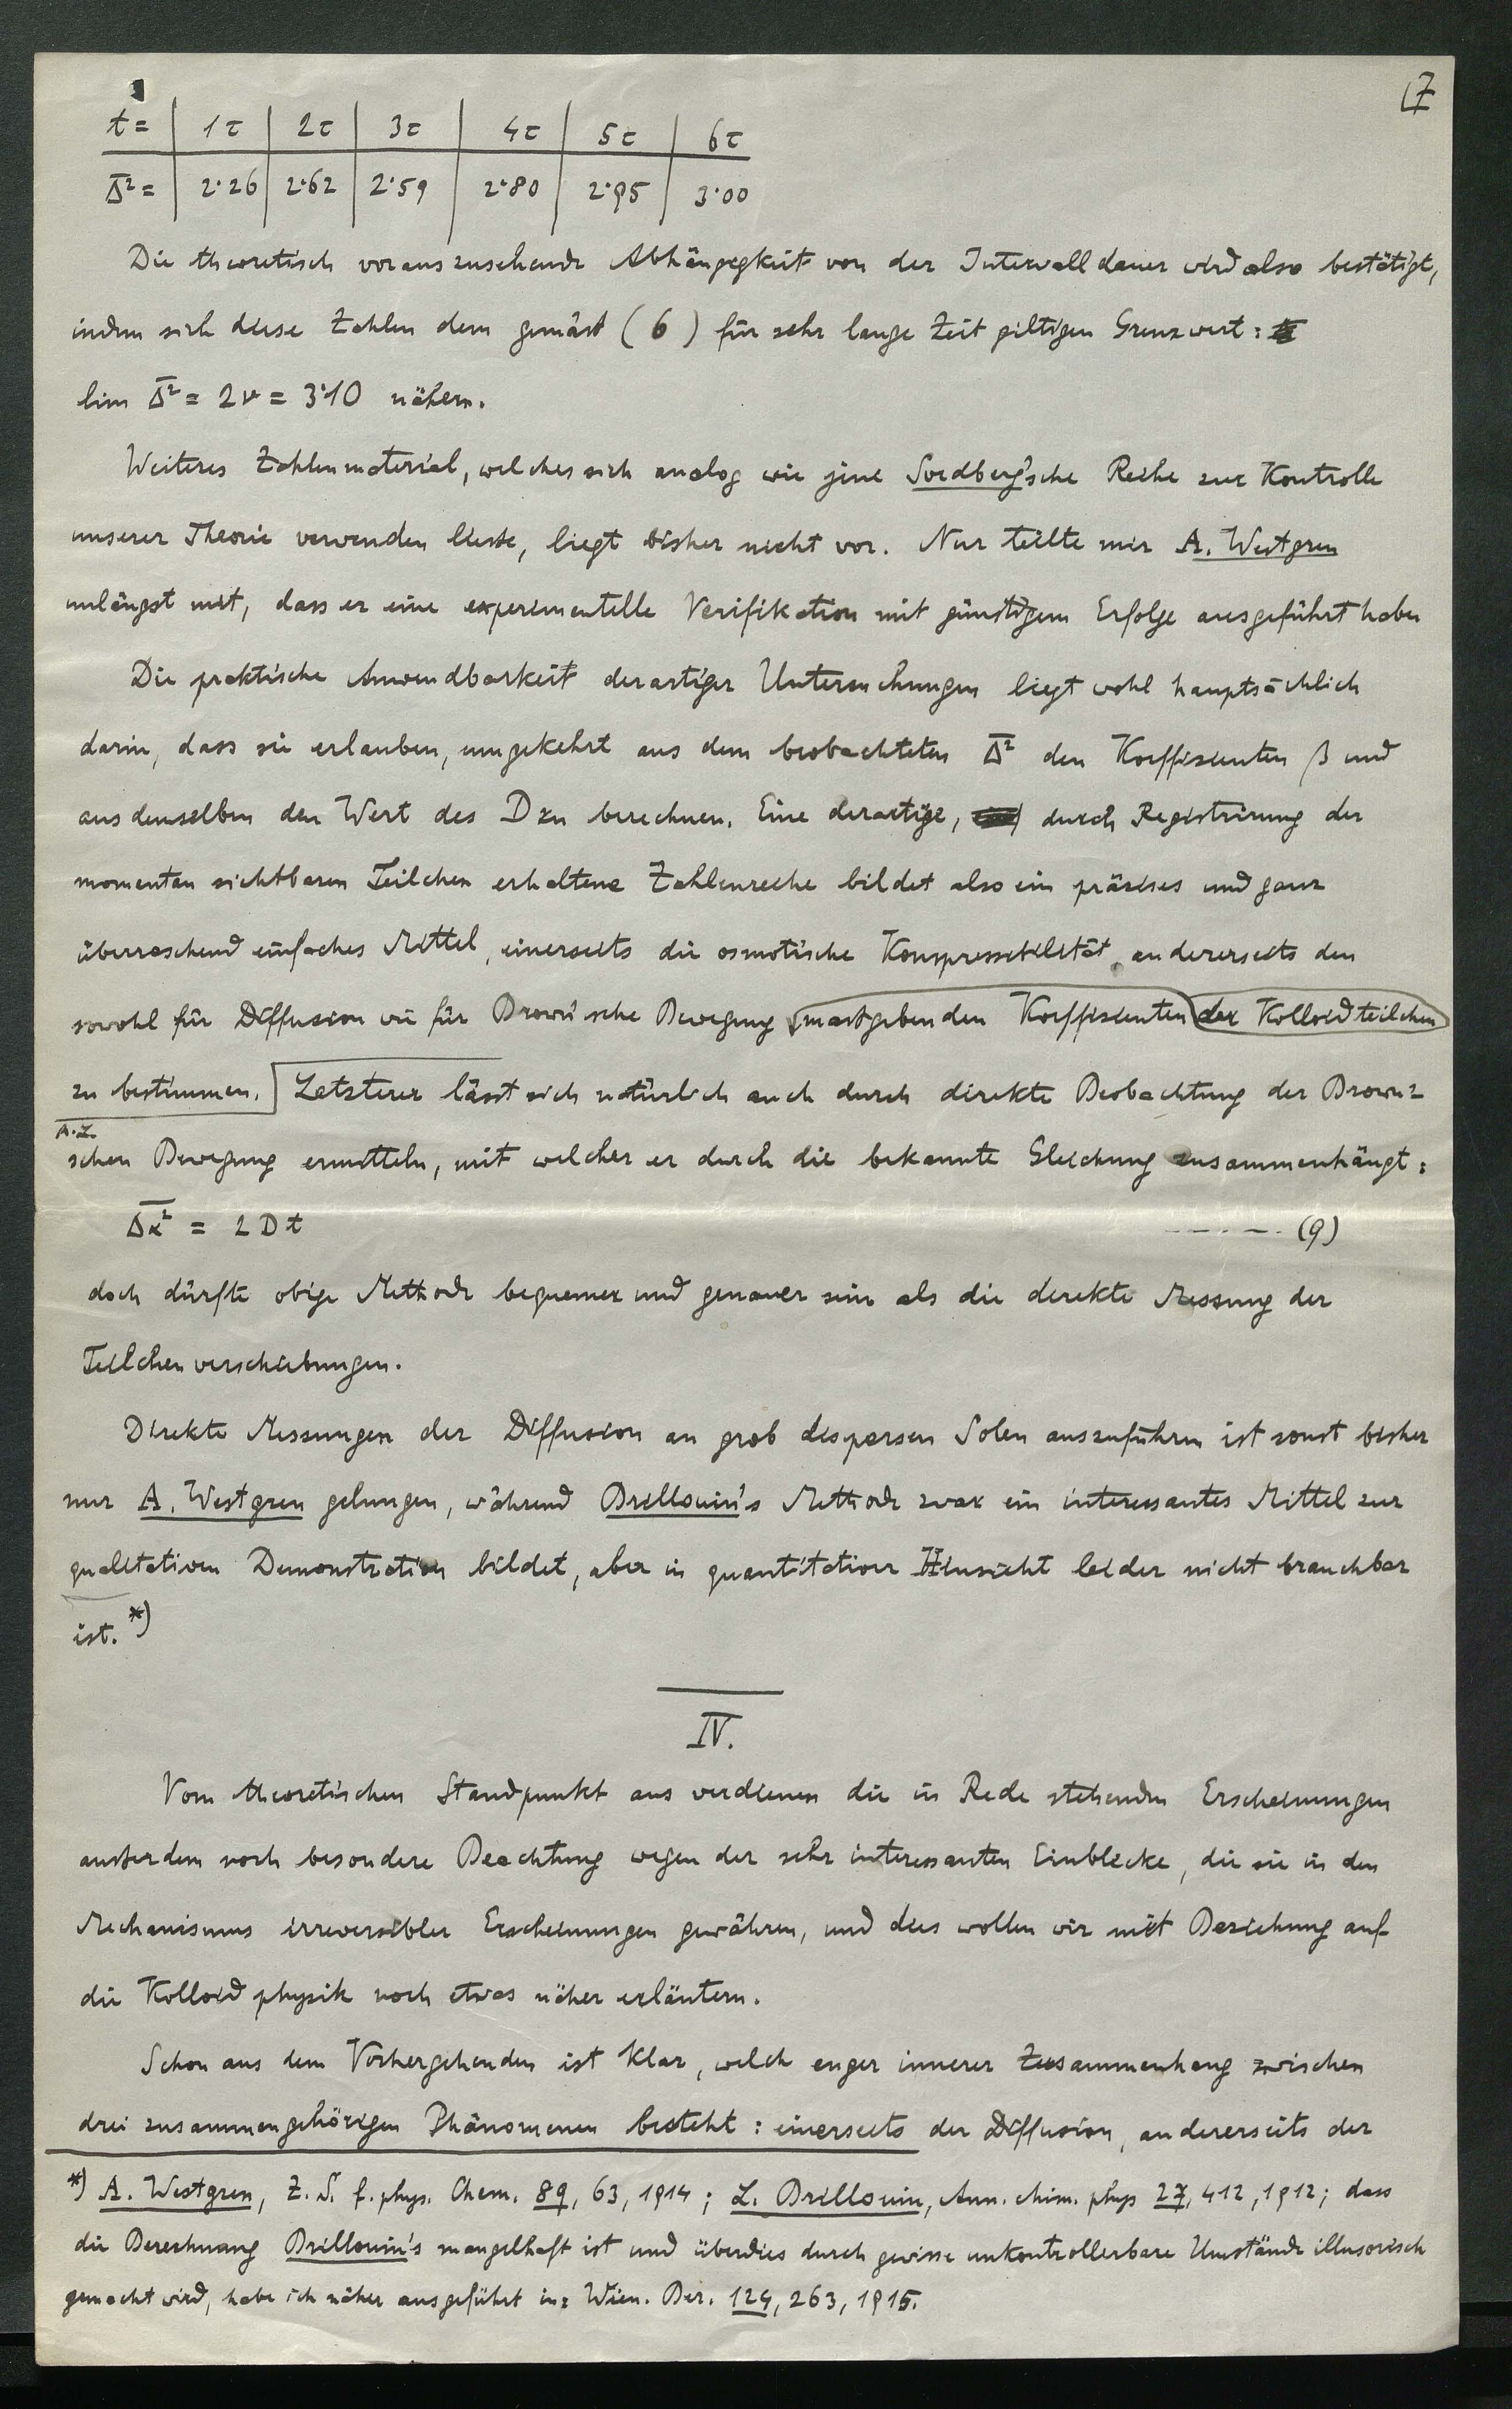 7
t = | 1τ | 2τ | 3τ | 4τ | 5τ | 6τ
Δ̅² = | 2·26 | 2·62 | 2·59 | 2·80 | 2·95 | 3·00
Die theoretisch vorauszusehende Abhängigkeit von der Intervalldauer wird also bestätigt,
indem sich diese Zahlen dem gemäss (6) für sehr lange Zeit giltigen Grenzwert:
lim Δ̅² = 2ν = 3·10 nähern.
Weiteres Zahlenmaterial, welches sich analog wie jene Svedberg'sche Reihe zur Kontrolle
unserer Theorie verwenden liesse, liegt bisher nicht vor. Nur teilte mir A. Westgren
unlängst mit, dass er eine experimentelle Verifikation mit günstigem Erfolge ausgeführt habe
Die praktische Anwendbarkeit derartiger Untersuchungen liegt wohl hauptsächlich
darin, dass sie erlauben, umgekehrt aus dem beobachteten Δ̅² den Koeffizienten β und
aus demselben den Wert des D zu berechnen. Eine derartige, durch Registrirung der
momentan sichtbaren Teilchen erhaltene Zahlenreihe bildet also ein präzises und ganz
überraschend einfaches Mittel, einerseits die osmotische Kompressibilität, andererseits den
sowohl für Diffusion wie für Brown'sche Bewegung massgebenden Koeffizienten der Kolloidteilchen
zu bestimmen. Letzterer lässt sich natürlich auch durch direkte Beobachtung der Brown-
A.L.
schen Bewegung ermitteln, mit welcher er durch die bekannte Gleichung zusammenhängt:
Δ̅x̅² = 2Dt ----- (9)
doch dürfte obige Methode bequemer und genauer sein als die direkte Messung der
Teilchenverschiebungen.
Direkte Messungen der Diffusion an grob dispersen Solen auszuführen ist sonst bisher
nur A. Westgren gelungen, während Brillouin's Methode zwar ein interessantes Mittel zur
qualitativen Demonstration bildet, aber in quantitativer Hinsicht leider nicht brauchbar
ist. *)
IV.
Vom theoretischen Standpunkt aus verdienen die in Rede stehenden Erscheinungen
ausserdem noch besondere Beachtung wegen der sehr interessanten Einblicke, die sie in den
Mechanismus irreversibler Erscheinungen gewähren, und dies wollen wir mit Beziehung auf
die Kolloidphysik noch etwas näher erläutern.
Schon aus dem Vorhergehenden ist klar, welch enger innerer Zusammenhang zwischen
drei zusammengehörigen Phänomenen besteht: einerseits der Diffusion, andererseits der
*) A. Westgren, Z. S. f. phys. Chem. 89, 63, 1914; L. Brillouin, Ann. chim. phys 27, 412, 1912; dass
die Berechnung Brillouin's mangelhaft ist und überdies durch gewisse unkontrollerbare Umstände illusorisch
gemacht wird, habe ich näher ausgeführt in: Wien. Ber. 124, 263, 1915.